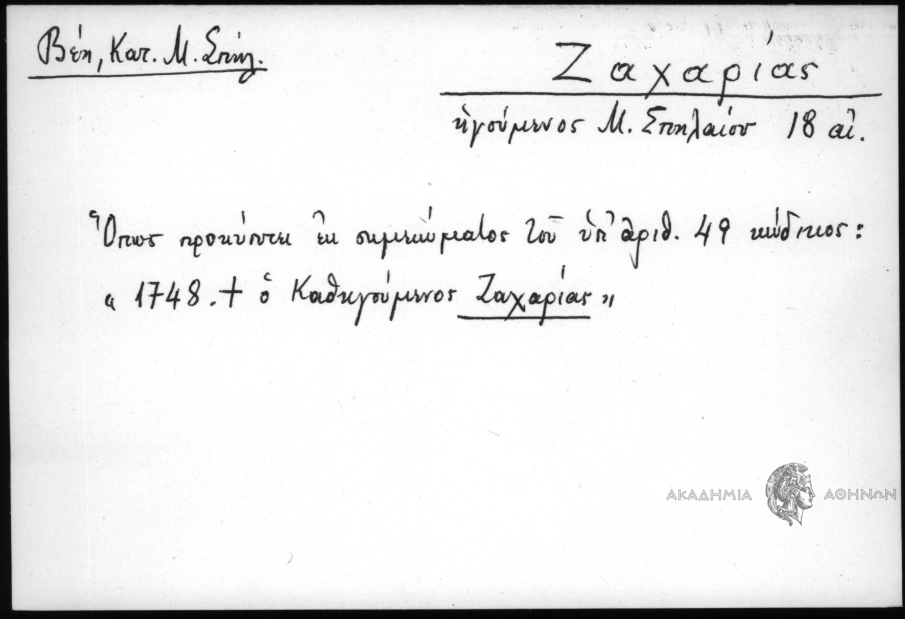 Βέη, Κατ. Μ. Σπηλ.
Ζαχαρίας
ἡγούμενος Μ. Σπηλαίου 18 αἰ.
Ὅπως προκύπτει ἐκ σημειώματος τοῦ ὑπ' ἀριθ. 49 κώδικος:
« 1748. + ὁ Καθηγούμενος Ζαχαρίας »
ΑΚΑΔΗΜΙΑ ΑΘΗΝΩΝ